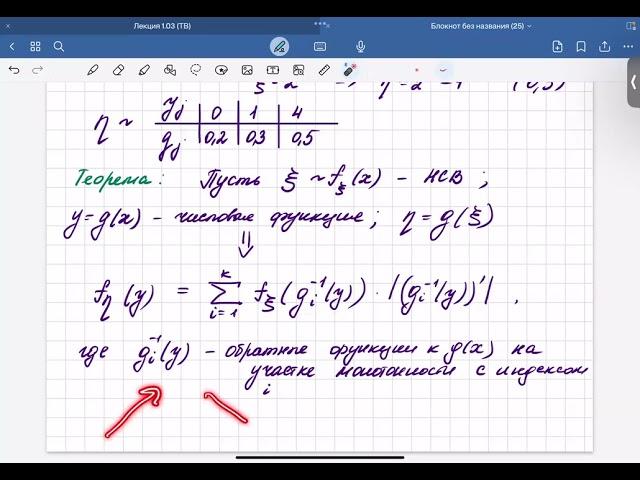 Лекция 1.03 (ТВ)
Блокнот без названия (25)
ξ=2 → η=2²=4 (0,5)
η ~ yj | 0 | 1 | 4
qj | 0,2 | 0,3 | 0,5
Теорема: Пусть ξ ~ f_ξ(x) – НСВ ;
y=g(x) – числовая функция ; η = g(ξ)
⇓
f_η(y) = ∑_{i=1}^{k} f_ξ(g_i^{-1}(y)) · |(g_i^{-1}(y))'| ,
где g_i^{-1}(y) – обратные функции к g(x) на
участке монотонности с индексом
i